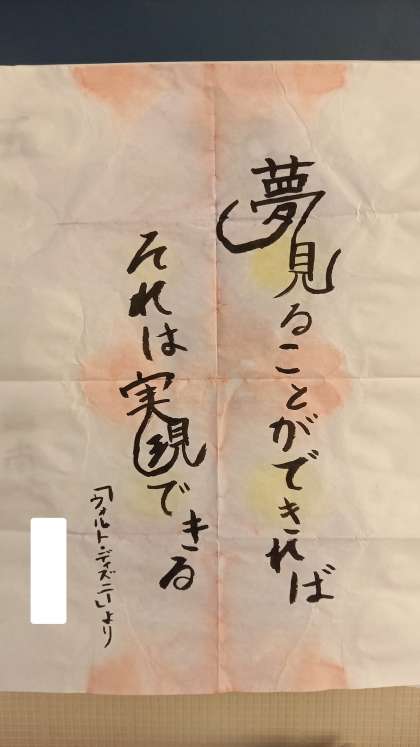 夢見ることができれば
それは実現できる
「ウォルト・ディズニー」より